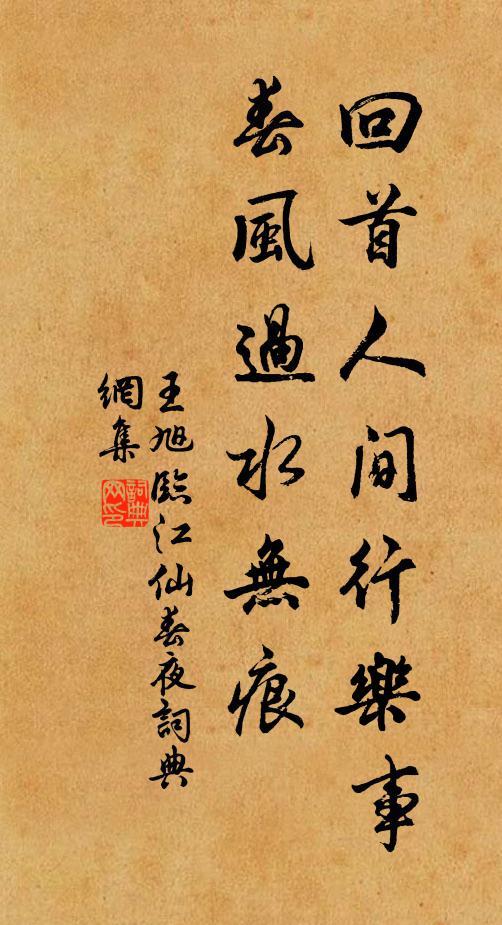 回首人間行樂事
春風過水無痕
王旭臨江仙春夜詞典
網集
詞典
网印